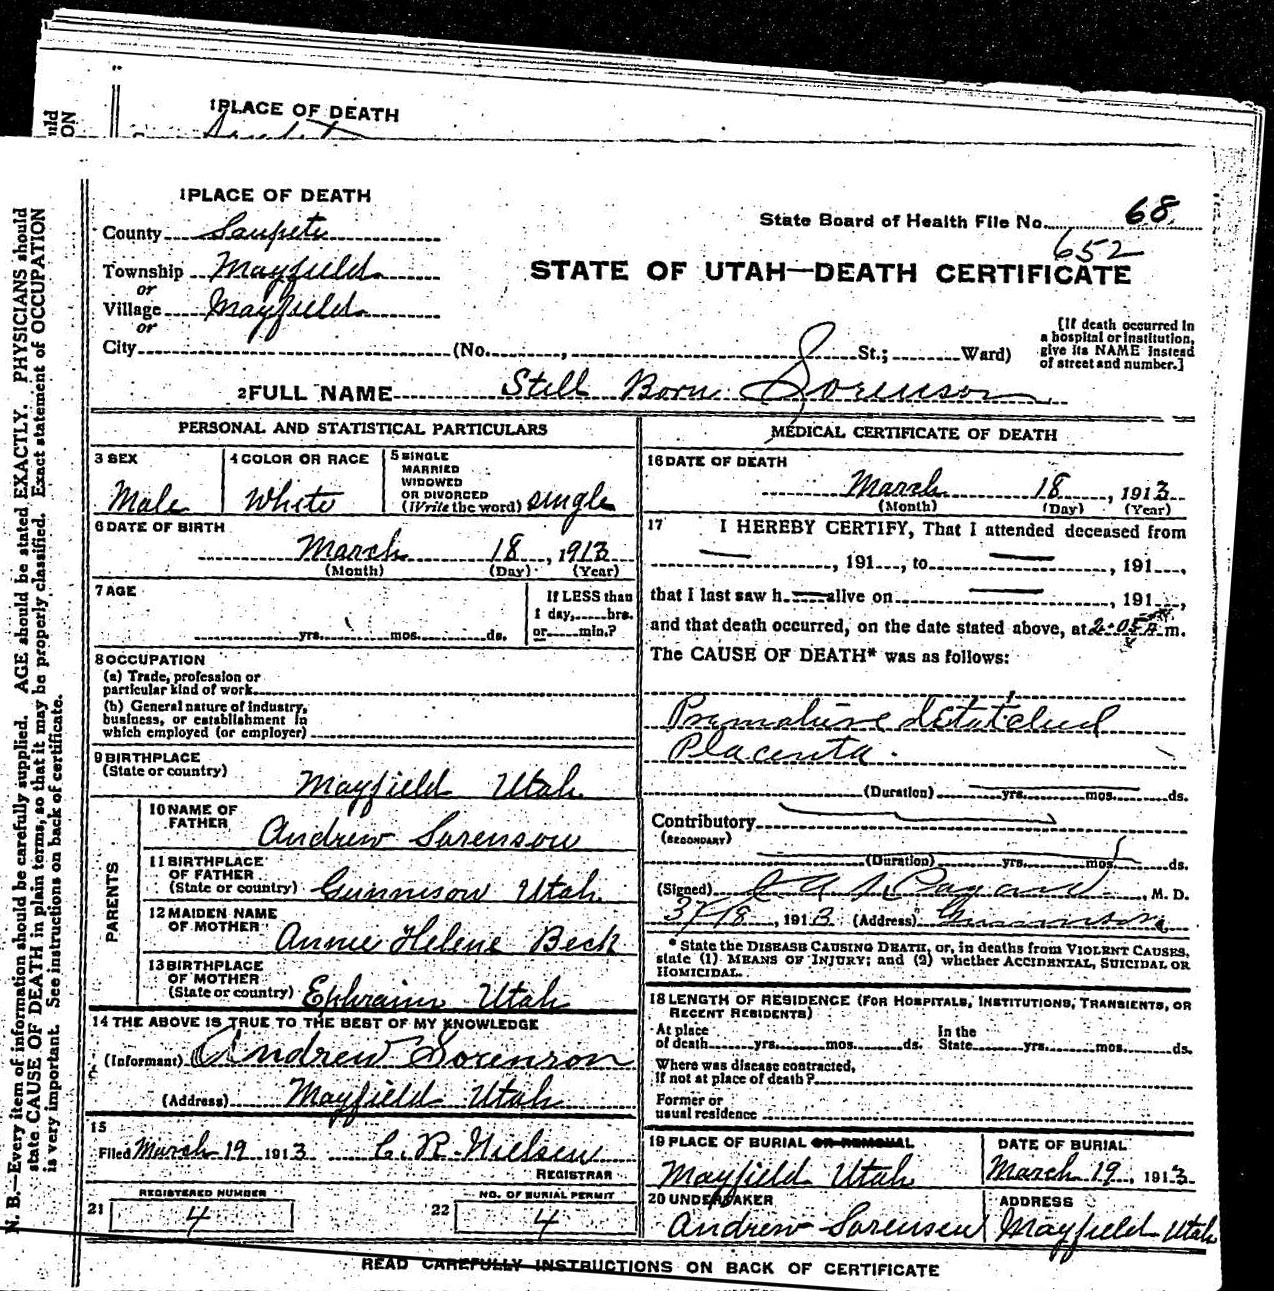 1 PLACE OF DEATH
1 PLACE OF DEATH
County Sanpete
Township Mayfield
or
Village Mayfield
or
City (No. , St.; Ward)
State Board of Health File No. 68
652
STATE OF UTAH—DEATH CERTIFICATE
[If death occurred in
a hospital or institution,
give its NAME instead
of street and number.]
2 FULL NAME Still Born Sorenson
PERSONAL AND STATISTICAL PARTICULARS
3 SEX
Male
4 COLOR OR RACE
White
5 SINGLE
MARRIED
WIDOWED
OR DIVORCED
(Write the word) single
6 DATE OF BIRTH
March 18, 1913
(Month) (Day) (Year)
7 AGE
yrs. mos. ds.
If LESS than
1 day, hrs.
or min.?
8 OCCUPATION
(a) Trade, profession or
particular kind of work
(b) General nature of industry,
business, or establishment in
which employed (or employer)
9 BIRTHPLACE
(State or country)
Mayfield Utah
PARENTS
10 NAME OF
FATHER
Andrew Sorenson
11 BIRTHPLACE
OF FATHER
(State or country) Gunnison Utah.
12 MAIDEN NAME
OF MOTHER
Annie Helene Beck
13 BIRTHPLACE
OF MOTHER
(State or country) Ephraim Utah
14 THE ABOVE IS TRUE TO THE BEST OF MY KNOWLEDGE
(Informant) Andrew Sorenson
(Address) Mayfield Utah
15
Filed March 19 1913 C. R. Nielsen
REGISTRAR
21
REGISTERED NUMBER
4
22
NO. OF BURIAL PERMIT
4
MEDICAL CERTIFICATE OF DEATH
16 DATE OF DEATH
March 18, 1913
(Month) (Day) (Year)
17 I HEREBY CERTIFY, That I attended deceased from
, 191 , to , 191 ,
that I last saw h alive on , 191 ,
and that death occurred, on the date stated above, at 2:05 m.
The CAUSE OF DEATH* was as follows:
Premature
Placenta.
(Duration) yrs. mos. ds.
Contributory
(SECONDARY)
(Duration) yrs. mos. ds.
(Signed) , M. D.
3/18, 1913 (Address) Gunnison
* State the DISEASE CAUSING DEATH, or, in deaths from VIOLENT CAUSES,
state (1) MEANS OF INJURY; and (2) whether ACCIDENTAL, SUICIDAL OR
HOMICIDAL.
18 LENGTH OF RESIDENCE (FOR HOSPITALS, INSTITUTIONS, TRANSIENTS, OR
RECENT RESIDENTS)
At place
of death yrs. mos. ds.
In the
State yrs. mos. ds.
Where was disease contracted,
If not at place of death?
Former or
usual residence
19 PLACE OF BURIAL OR REMOVAL
Mayfield Utah
DATE OF BURIAL
March 19, 1913
20 UNDERTAKER
Andrew Sorensen
ADDRESS
Mayfield Utah
READ CAREFULLY INSTRUCTIONS ON BACK OF CERTIFICATE
N. B.—Every item of information should be carefully supplied. AGE should be stated EXACTLY. PHYSICIANS should
state CAUSE OF DEATH in plain terms, so that it may be properly classified. Exact statement of OCCUPATION
is very important. See instructions on back of certificate.